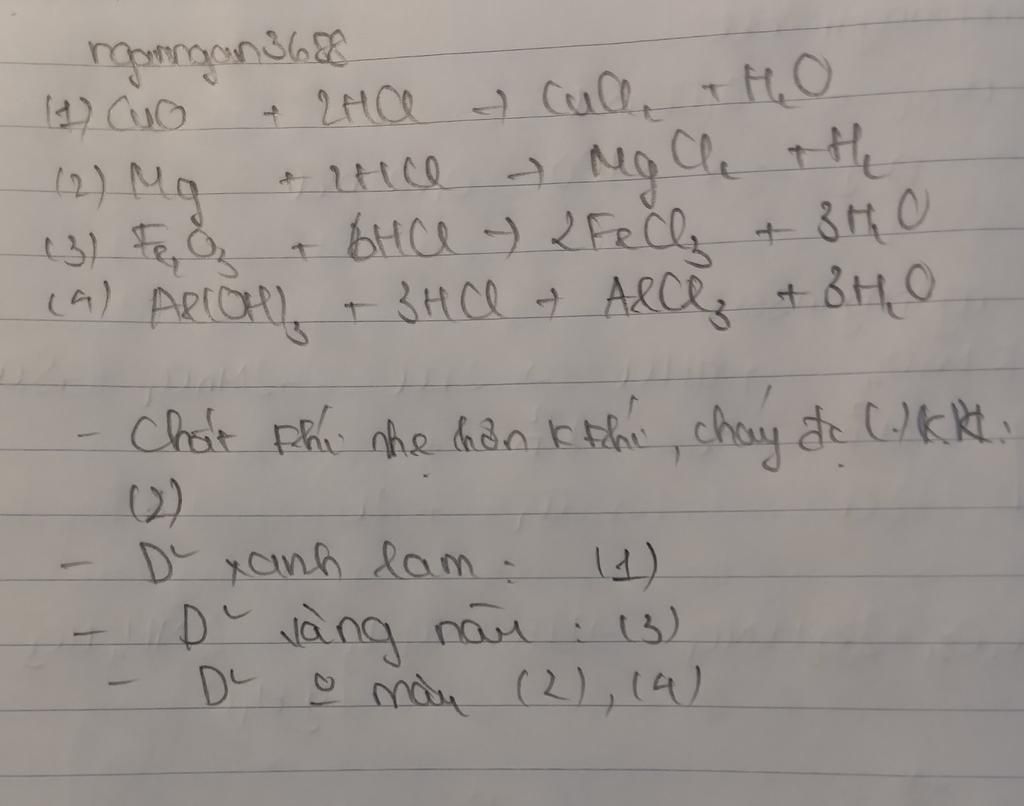 nganngan3688
(1) CuO + 2HCl → CuCl₂ + H₂O
(2) Mg + 2HCl → MgCl₂ + H₂
(3) Fe₂O₃ + 6HCl → 2FeCl₃ + 3H₂O
(4) Al(OH)₃ + 3HCl → AlCl₃ + 3H₂O
- Chất khí nhẹ hơn k khí, cháy đc (.) KK:
(2)
- D² xanh lam : (1)
- D² vàng nâu : (3)
- D² o màu (2), (4)